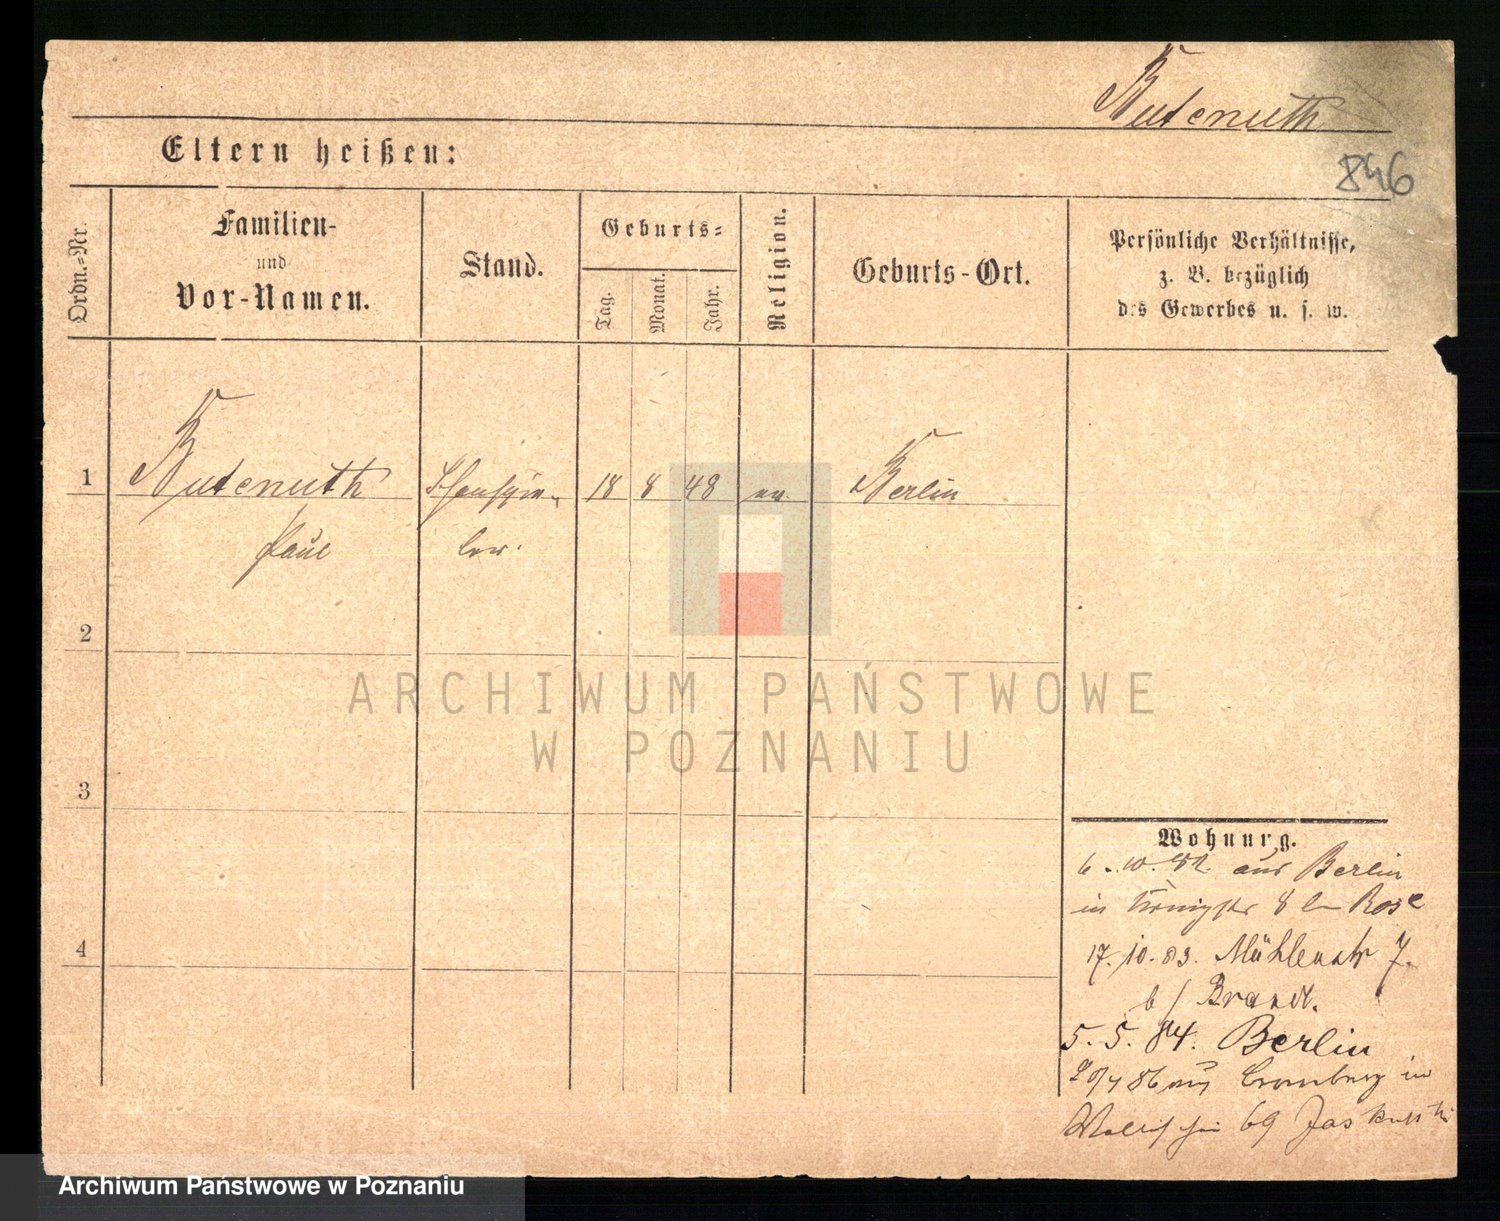 Butenuth
846
Eltern heißen:
Ordn.-Nr.
Familien-
und
Vor-Namen.
Stand.
Geburts-
Tag.
Monat.
Jahr.
Religion.
Geburts-Ort.
Persönliche Verhältnisse,
z. B. bezüglich
des Gewerbes u. s. w.
1
Butenuth
Schauspie-
18
8
48
ev.
Berlin
Paul
ler.
2
ARCHIWUM PAŃSTWOWE
W POZNANIU
3
Wohnung.
6. 10. 82 aus Berlin
in Königstr 8 Rose
4
17. 10. 83. Mühlenstr 7.
b/ Brandt.
5. 5. 84. Berlin
86 aus Bromberg in
Wallischei 69
Archiwum Państwowe w Poznaniu